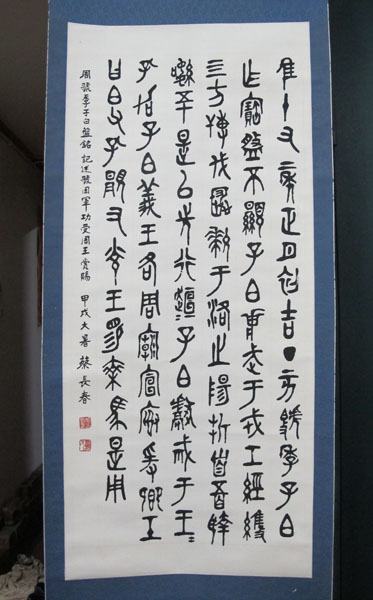 隹十又二年正月初吉丁亥虢季子白
乍寶盤不顯子白壯武于戎工經維
四方博伐玁狁于洛之陽折首五百執
訊五十是以先行桓=子白獻馘于王=
孔加子白義王各周廟宣榭爰卿王
曰白父孔顯又光王睗乘馬是用
周虢季子白盤銘 記述虢國軍功受周王賞賜 甲戌大暑 蔡長春